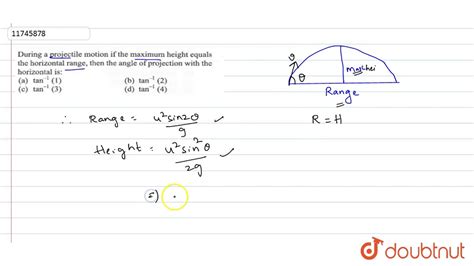 11745878
During a projectile motion if the maximum height equals
the horizontal range, then the angle of projection with the
horizontal is:
(a) tan⁻¹ (1) (b) tan⁻¹ (2)
(c) tan⁻¹ (3) (d) tan⁻¹ (4)
θ
Range
R = H
∴ Range = u² sin2θ / g
Height = u² sin²θ / 2g
doubtnut